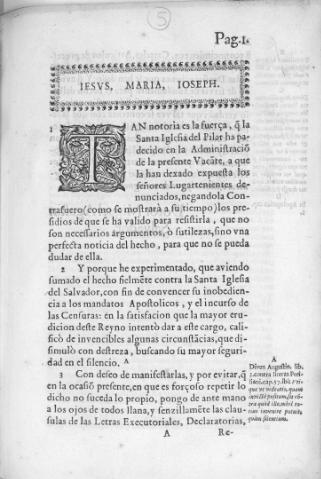 5
Pag. 1.
IESVS, MARIA, IOSEPH.
1 TAN notoria es la fuerça, q̃ la
Santa Iglesia del Pilar ha pa-
decido en la Administraciõ
de la presente Vacãte, a que
la han dexado expuesta los
señores Lugartenientes de-
nunciados, negandola Con-
trafuero (como se mostrarà a su tiempo) los pre-
sidios de que se ha valido para resistirla, que no
son necessarios argumentos, ò sutilezas, sino vna
perfecta noticia del hecho, para que no se pueda
dudar de ella.
2 Y porque he experimentado, que aviendo
sumado el hecho fielmẽte contra la Santa Iglesia
del Salvador, con fin de convencer su inobedien-
cia a los mandatos Apostolicos, y el incurso de
las Censuras: en la satisfacion que la mayor eru-
dicion deste Reyno intentò dar a este cargo, cali-
ficò de invencibles algunas circunstãcias, que di-
simulò con destreza, buscando su mayor seguri-
dad en el silencio. A
3 Con deseo de manifestarlas, y por evitar, q̃
en la ocasiõ presente, en que es forçoso repetir lo
dicho no suceda lo propio, pongo de ante mano
a los ojos de todos llana, y senzillamẽte las clau-
sulas de las Letras Executoriales, Declaratorias,
A
Divus Augustin. lib.
A Re-